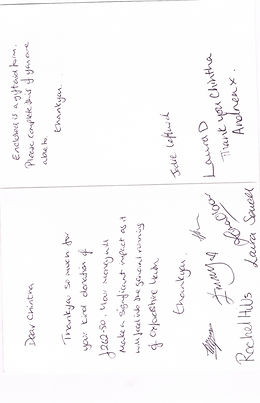 Dear Chintha
Thankyou so much for
your kind donation of
£262-50. Your money will
make a significant impact as it
will feed into the general running
of Oxfordshire Mind.
Thankyou.
Rachel Hills
Laura Sawell
Enclosed is a gift aid form.
Please complete this if you are
able to.
Thankyou.
Julie
Laura D
Thank you Chintha
Andrea x.